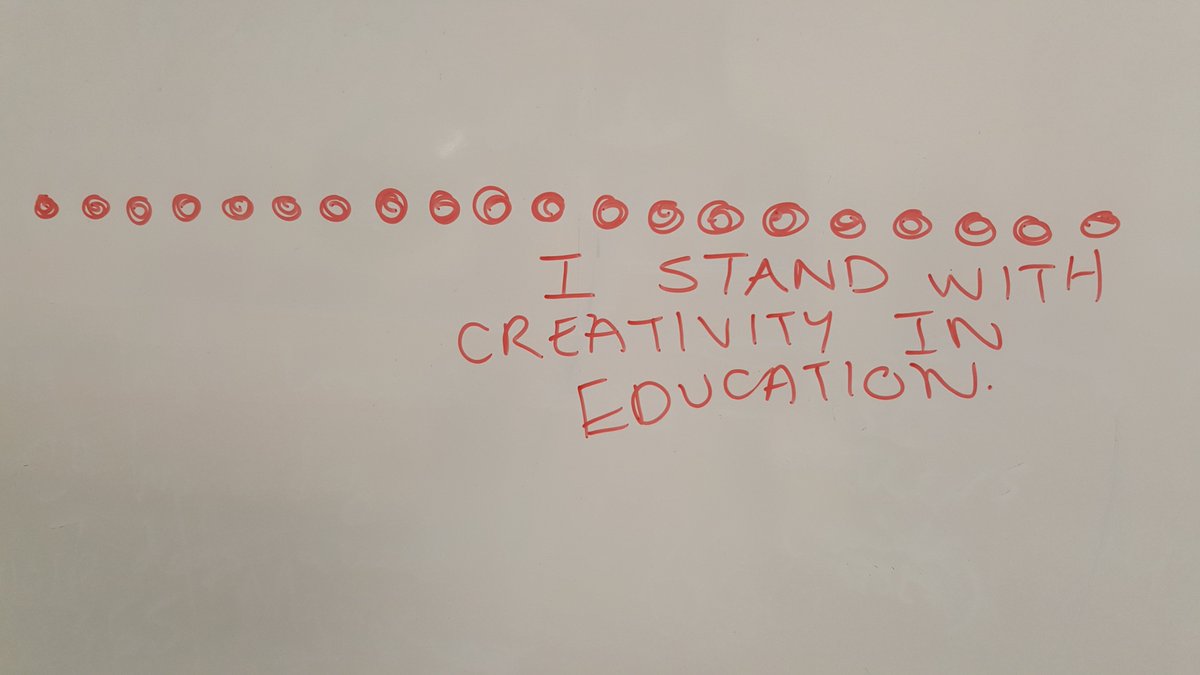 I STAND WITH
CREATIVITY IN
EDUCATION.